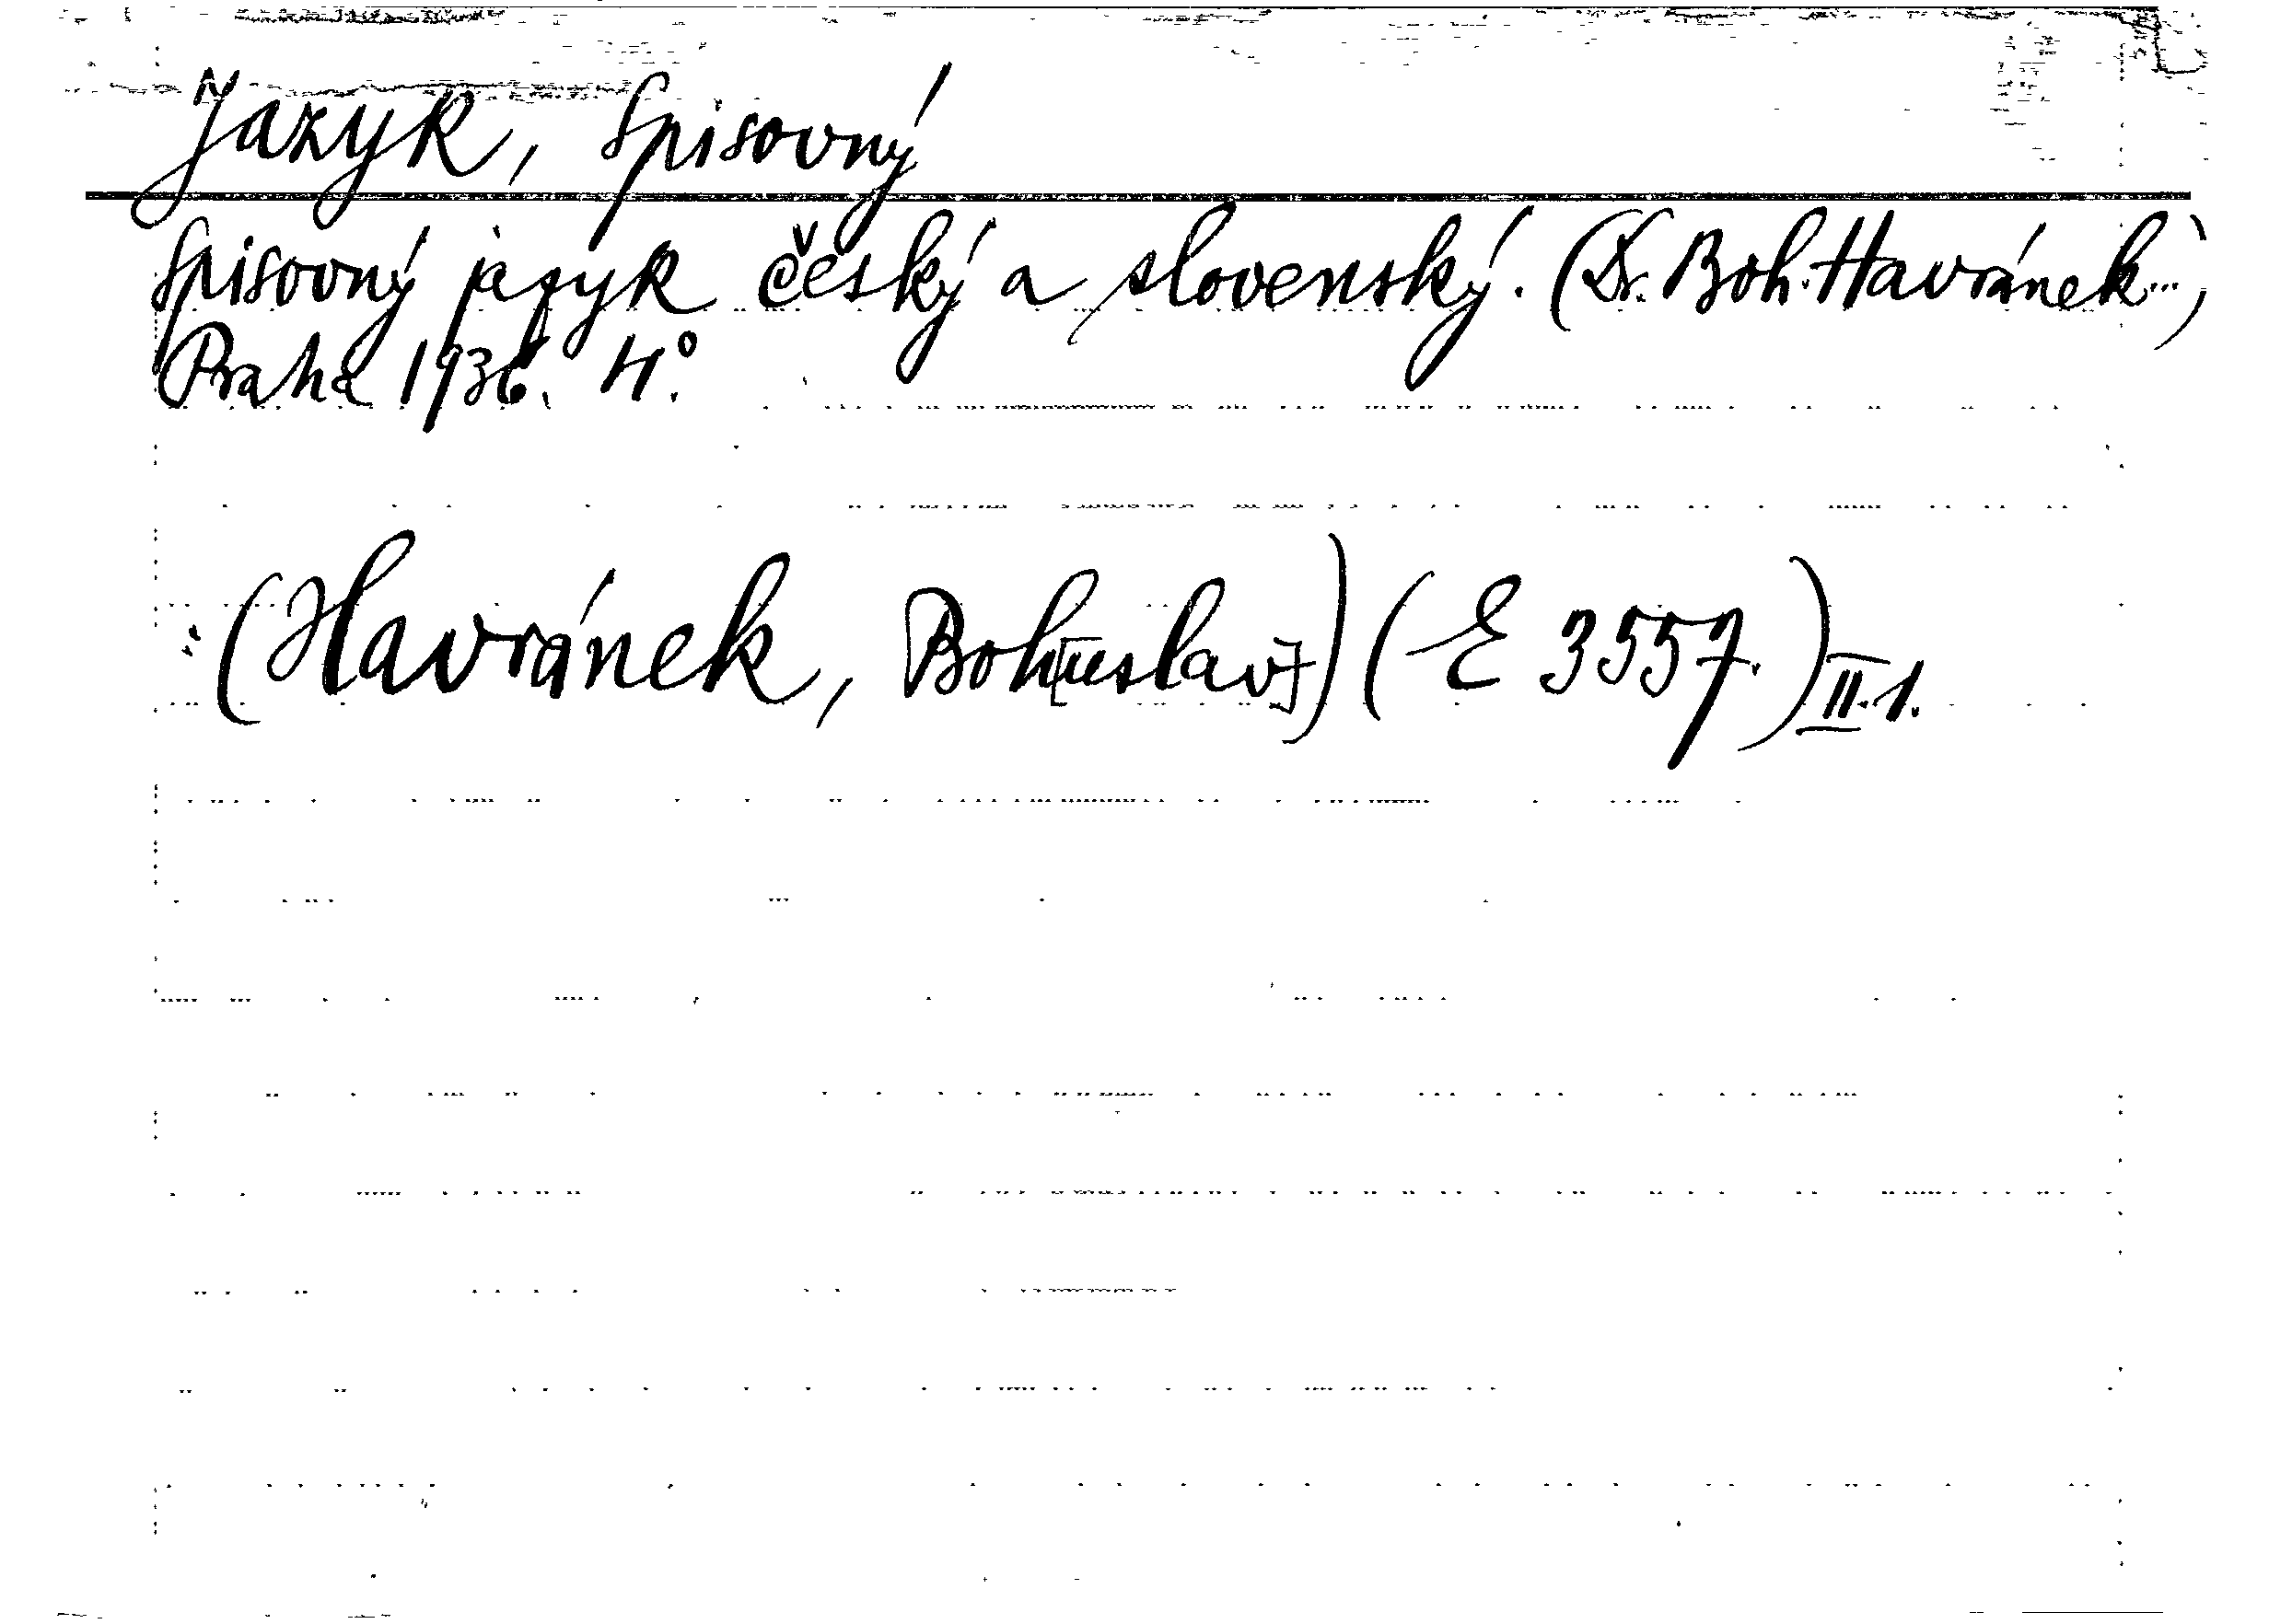 Jazyk, Spisovný
Spisovný jazyk český a slovenský. (Dr. Boh. Havránek...)
Praha 1936. 4°.
(Havránek, Boh[uslav]) (E 3557.) II.1.